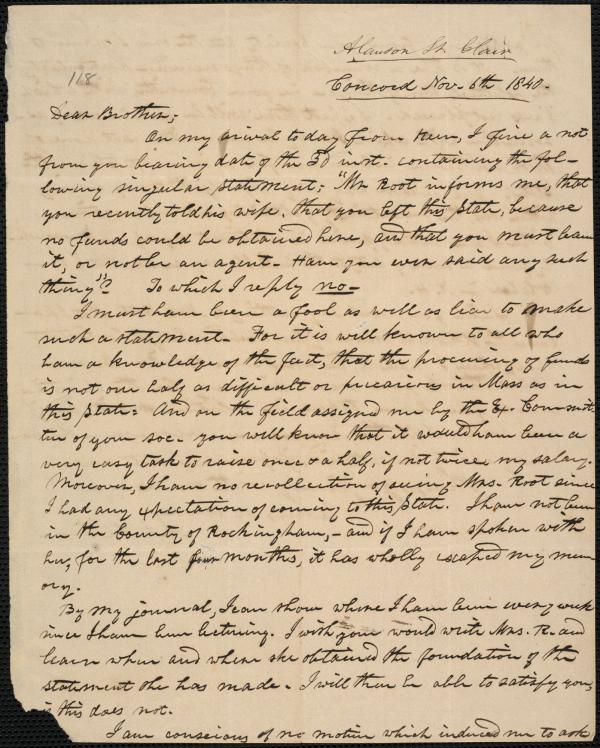 Alanson St. Clair
118
Concord Nov. 6th 1840.
Dear Brother;
On my arival to day from Keen, I find a not
from you bearing date of the 3d inst. containing the fol-
lowing singular statement; "Mr Root informs me, that
you recently told his wife, that you left this State, because
no funds could be obtained here, and that you must leave
it, or not be an agent- Have you ever said any such
thing"? To which I reply no-
I must have been a fool as well as liar to make
such a statement- For it is well known to all who
have a knowledge of the fact, that the procuring of funds
is not one half as difficult or precarious in Mass as in
this State: And on the field assigned me by the Ex. Commit
tee of your soc- you well know that it would have been a
very easy task to raise once & a half, if not twice my salary.
Moreover, I have no recollection of seeing Mrs. Root since
I had any expectation of coming to this State. I have not been
in the County of Rockingham,- and if I have spoken with
her, for the last four months, it has wholly escaped my mem
ory.
By my journal, I can show where I have been every week
since I have been lecturing. I wish you would write Mrs. R. and
learn when and where she obtained the foundation of the
statement she has made- I will then be able to satisfy you,
if this does not.
I am conscious of no motive which induced me to ask